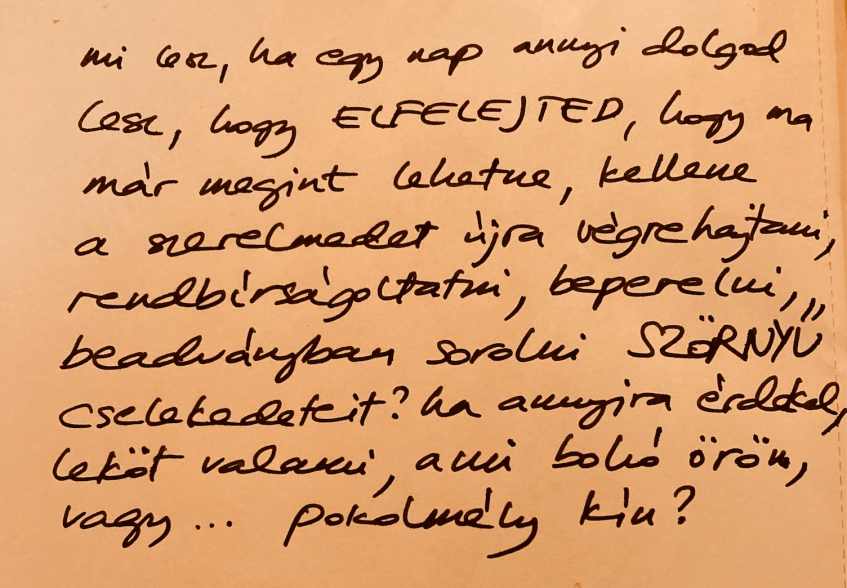 mi lesz, ha egy nap annyi dolgod
lesz, hogy ELFELEJTED, hogy ma
már megint lehetne, kellene
a szerelmedet újra végrehajtani,
rendbírságoltatni, beperelni,
beadványban sorolni SZÖRNYŰ
cselekedeteit? ha annyira érdekel,
leköt valami, ami bohó öröm,
vagy... pokolmély kín?